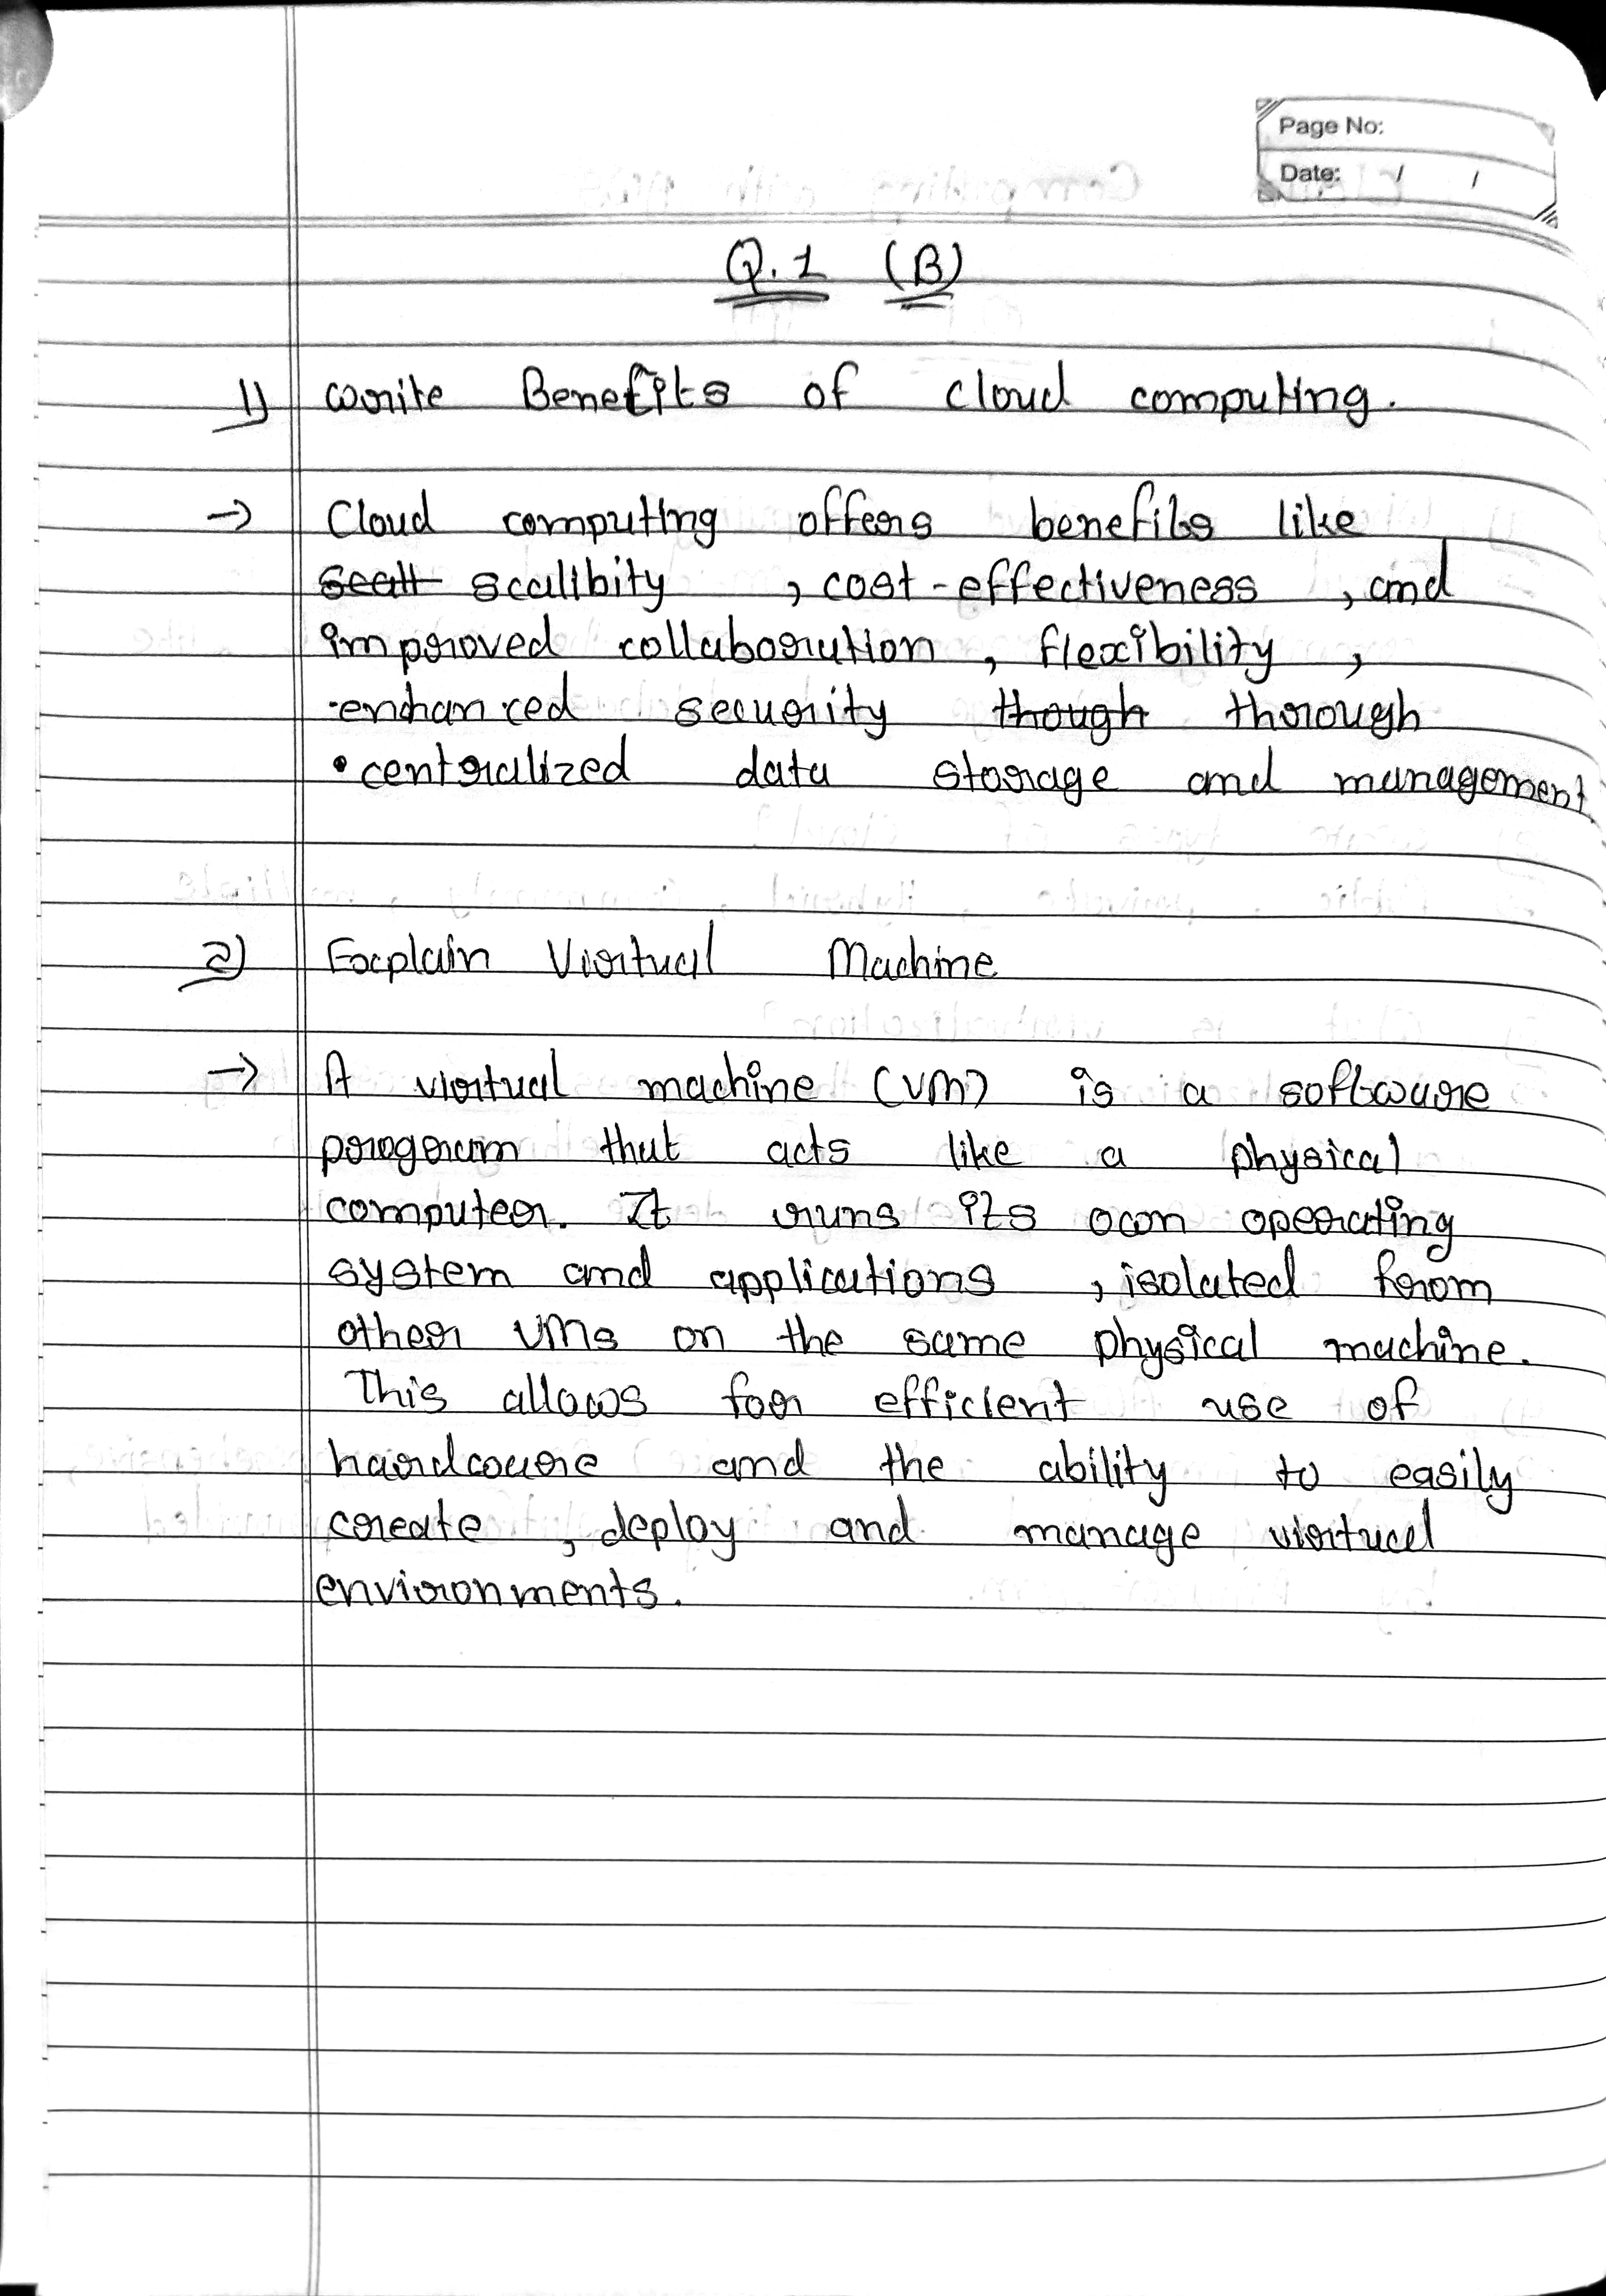 Page No:
Date: / /
Q.1 (B)
1) write Benefits of cloud computing.
→ Cloud computing offers benefits like
scall scalibity , cost-effectiveness , and
improved collaboration , flexibility ,
enhanced security though through
• centralized data storage and management
2) Explain Virtual Machine
→ A virtual machine (VM) is a software
program that acts like a physical
computer. It runs its own operating
system and applications , isolated from
other VMs on the same physical machine.
This allows for efficient use of
hardware and the ability to easily
create , deploy and manage virtual
environments.